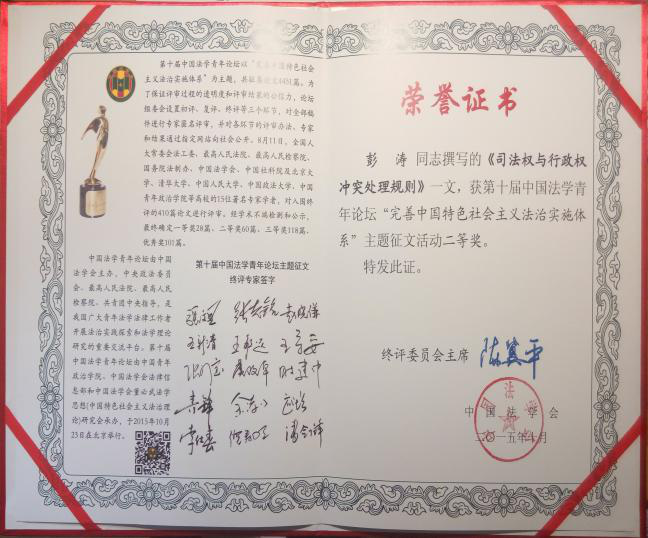 第十届中国法学青年论坛以“完善中国特色社会
主义法治实施体系”为主题，共征集论文4451篇。为
了保证评审过程的透明度和评审结果的公信力，论坛
组委会设置初评、复评、终评等三个环节，对全部稿
件进行专家匿名评审，并对各环节的评审办法、专家
和结果通过指定网站向社会公开。8月11日，全国人
大常委会法工委、最高人民法院、最高人民检察院、
国务院法制办、中国法学会、中国社科院及北京大
学、清华大学、中国人民大学、中国政法大学、中国
青年政治学院等高校的15位著名专家学者，对入围终
评的410篇论文进行评审。经学术不端检测和公示，
最终确定一等奖28篇、二等奖60篇、三等奖118篇、
优秀奖101篇。
中国法学青年论坛由中国
法学会主办，中央政法委员
会、最高人民法院、最高人民
检察院、共青团中央指导，是
我国广大青年法学法律工作者
开展法治实践探索和法学理论
研究的重要交流平台。第十届
中国法学青年论坛由中国青年
政治学院、中国法学会法律信
息部和中国法学会董必武法学
思想(中国特色社会主义法治理
论)研究会承办，于2015年10月
23日在北京举行。
第十届中国法学青年论坛主题征文
终评专家签字
荣誉证书
彭 涛 同志撰写的《司法权与行政权
冲突处理规则》一文，获第十届中国法学青
年论坛“完善中国特色社会主义法治实施体
系”主题征文活动二等奖。
特发此证。
终评委员会主席 陈冀平
中国法学会
二〇一五年十月